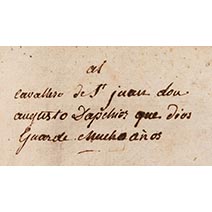 al
cavallero de Sn juan don
augusto Dapchios que dios
Guarde Muchos años